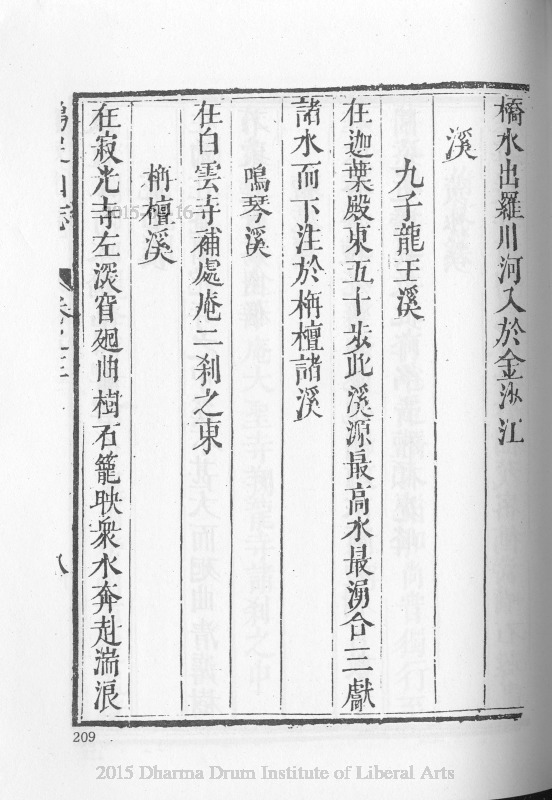 橋水出羅川河入於金沙江
溪
九子龍王溪
在迦葉殿東五十步此溪源最高水最湧合三獻
諸水而下注於栴檀諸溪
鳴琴溪
在白雲寺補處庵二刹之東
栴檀溪
在寂光寺左深窅廻曲樹石籠映衆水奔赴湍浪
山志
八
209
2015 Dharma Drum Institute of Liberal Arts